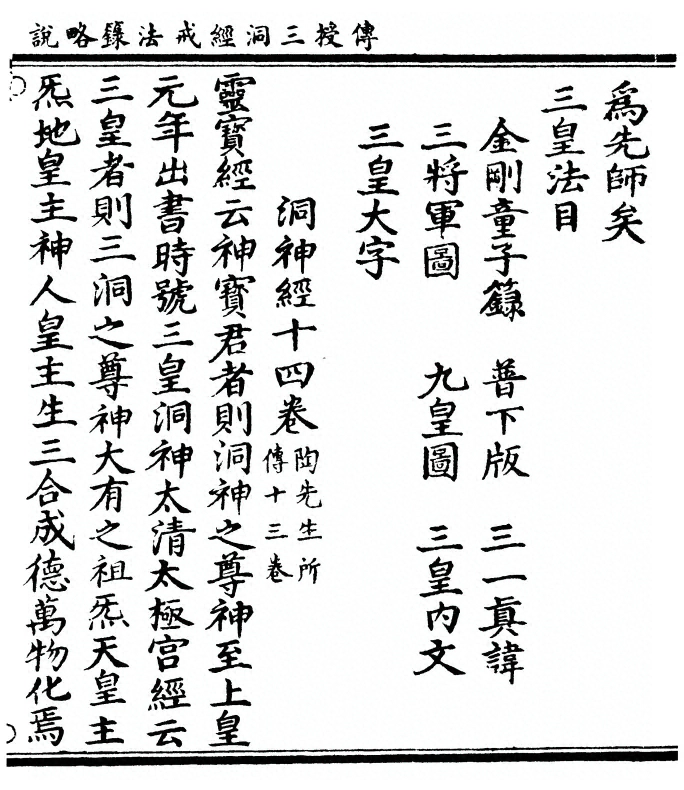 傳授三洞經戒法籙略說
爲先師矣
三皇法目
金剛童子籙　普下版　三一眞諱
三將軍圖　九皇圖　三皇內文
三皇大字
洞神經十四卷陶先生所傳十三卷
靈寶經云神寶君者則洞神之尊神至上皇
元年出書時號三皇洞神太清太極宮經云
三皇者則三洞之尊神大有之祖炁天皇主
炁地皇主神人皇主生三合成德萬物化焉